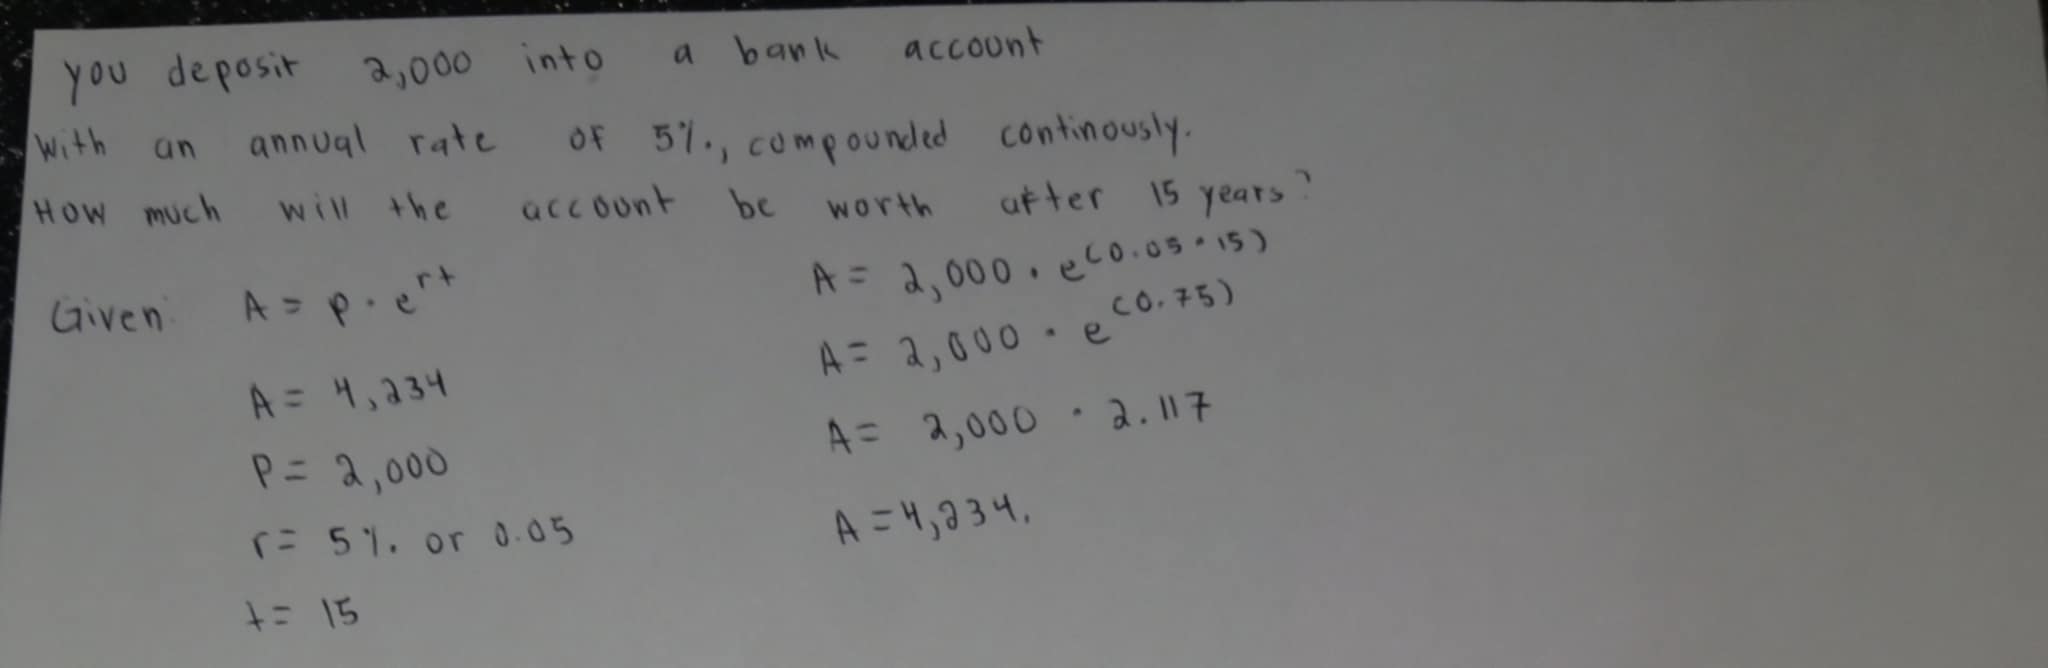 you deposit 2,000 into a bank account
With an annual rate of 5%, compounded continously.
How much will the account be worth after 15 years?
Given: A = p · e^rt
A = 4,234
P = 2,000
r = 5% or 0.05
t = 15
A = 2,000 · e^(0.05 · 15)
A = 2,000 · e^(0.75)
A = 2,000 · 2.117
A = 4,234.